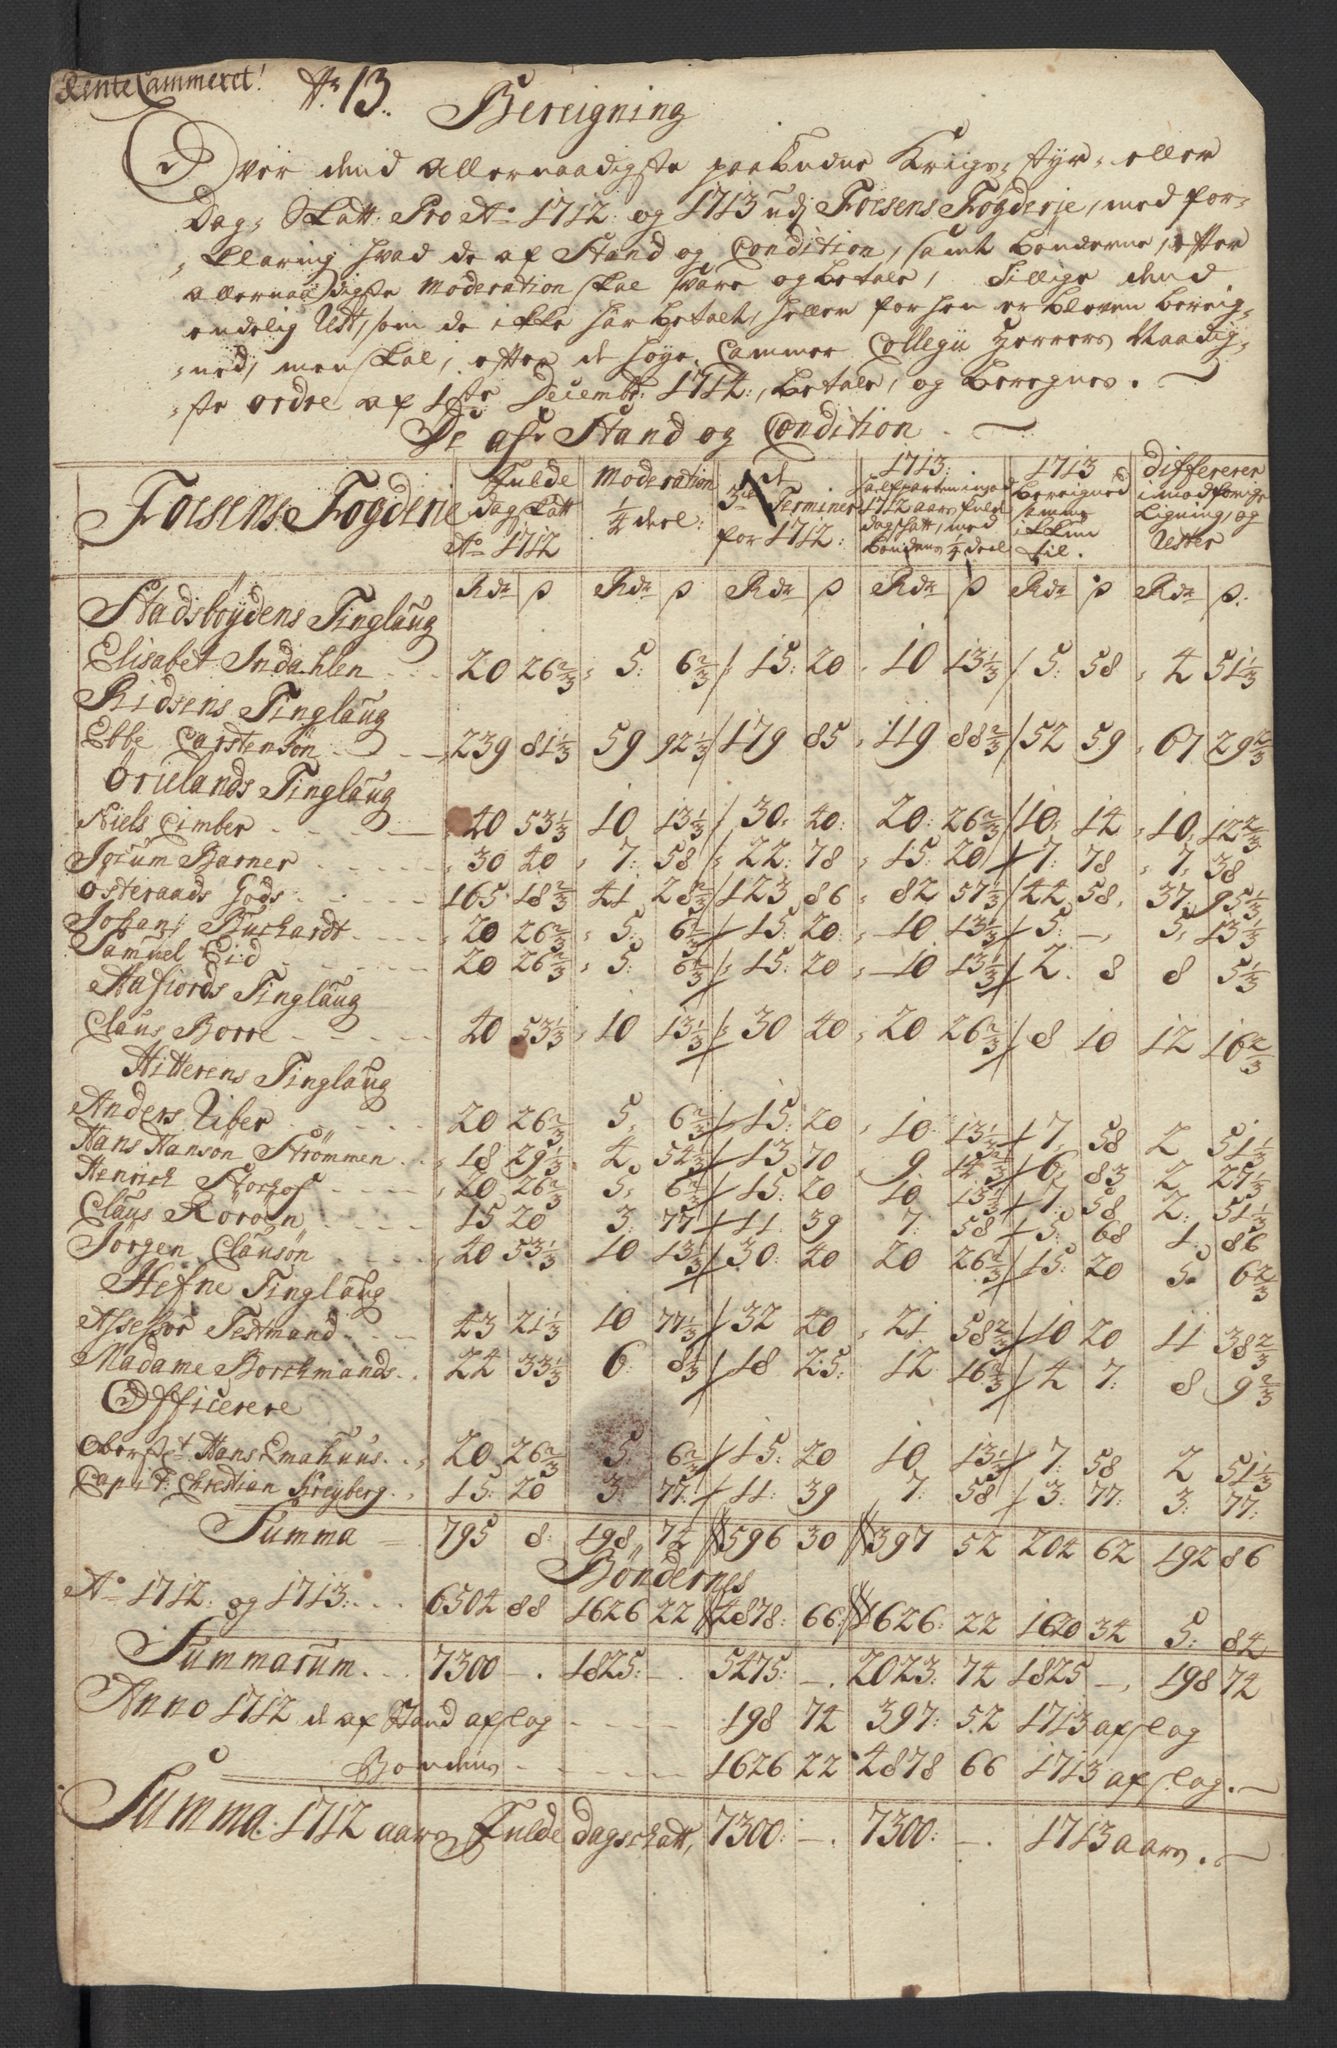 RenteCammeret!
No 13.
Bereigning
Over dend Allernaadigste paabudne Kriigs, Styr, eller
Dag, Skatt: Pro Ao 1712: og 1713 udj Foesens Fogderie, med for-
klaring hvad de af Stand og Condition, samt bønderne, efter
allernaadigste Moderation skal svare og betale, Tillige dend
endelig Rest, som de ikke har betalt, heller forhen er bleven bereig-
ned, men skal, efter de høye Cammer Collegii Herrers Naadig-
ste ordre af 1ste Decembr: 1714:, betale, og beregnes.
De af Stand og Condition
Foesens Fogderie | Fulde dag skatt Ao 1712 | Moderation 1/4 deel: | de 3de Terminer for 1712: | 1713: halfparten imod 1712 aars fulde dagskatt, med bondens 1/4 deel | 1713 bereigned samme ikkun til. | differerer imod forrige Ligning, og Rester
Rdr ß Rdr ß Rdr ß Rdr ß Rdr ß Rdr ß:
Stadsbøydens Tinglaug
Elisabet Indahlen 20 26 2/3 5: 6 2/3 15: 20 10 13 1/3 5: 58 4 51 1/3
Ridsens Tinglaug
Ebbe Carstensøn 239 81 1/3 59 92 1/3 179 85 119 88 2/3 52 59 67 29 2/3
Ørelands Tinglaug
Niels Cimber 40 53 1/3 10 13 1/3 30: 40: 20: 26 2/3 10: 14 10: 12 2/3
Jørum Barner 30 40 7: 58 22: 78 15: 20 7: 78 7: 38
Østeraads Gods 165 18 2/3 41 28 2/3 123 86 82 57 1/3 44 58 37 95 1/3
Johan Burhardt 20 26 2/3 5: 6 2/3 15: 20: 10 13 1/3 5: — 5: 13 1/3
Samuel Eid 20 26 2/3 5: 6 2/3 15: 20 10 13 1/3 2: 8 8 5 1/3
Aafiords Tinglaug
Claus Borre 40 53 1/3 10 13 1/3 30 40 20 26 2/3 8 10 12 16 2/3
Hitterens Tinglaug
Anders Riber 20 26 2/3 5, 6 2/3 15: 20 10: 13 1/3 7 58 2 51 1/3
Hans Hansøn Strømmen 18 29 1/3 4 54 2/3 13 70 9 14 2/3 6 83 2 27 1/3
Henrich Storhof 20 26 2/3 5, 6 2/3 15: 20 10 13 1/3 7: 58 2: 51 1/3
Claus Rørøen 15 20 3: 77 11: 39 7: 58 5: 68 1: 86
Jørgen Clausøn 40 53 1/3 10 13 1/3 30: 40 20 26 2/3 15: 20 5 6 2/3
Hefne Tinglaug
Assessor Testmand 43 21 1/3 10 77 1/3 32 40 21 58 2/3 10 20 11 38 2/3
Madame Borchmands 24 33 1/3 6: 8 1/3 18 25: 12 16 2/3 4 7: 8 9 2/3
Officerere
Oberst Hans Emahuus 20 26 2/3 5: 6 2/3 15: 20 10 13 1/3 7: 58 2 51 1/3
Capit: Christian Kreyberg 15: 20 3: 77: 11: 39 7: 58 3: 77: 3: 77:
Summa 795 8: 198 74 596 30 397 52 204 62 192 86
Bøndernes
Ao 1712: og 1713: 6504 88 1626 22 4878: 66: 1626: 22 1620 34 5: 84
Summarum 7300 —. 1825: —. 5475: —. 2023: 74 1825 —, 198 74
Anno 1712 de af Stand afslag 198 74 397: 52 1713 afslag
Bondens 1626 22 4878 66 1713 afslag.
Summa. 1712 aars Fulde dagschatt, 7300: —. 7300: —. 1713 aars.